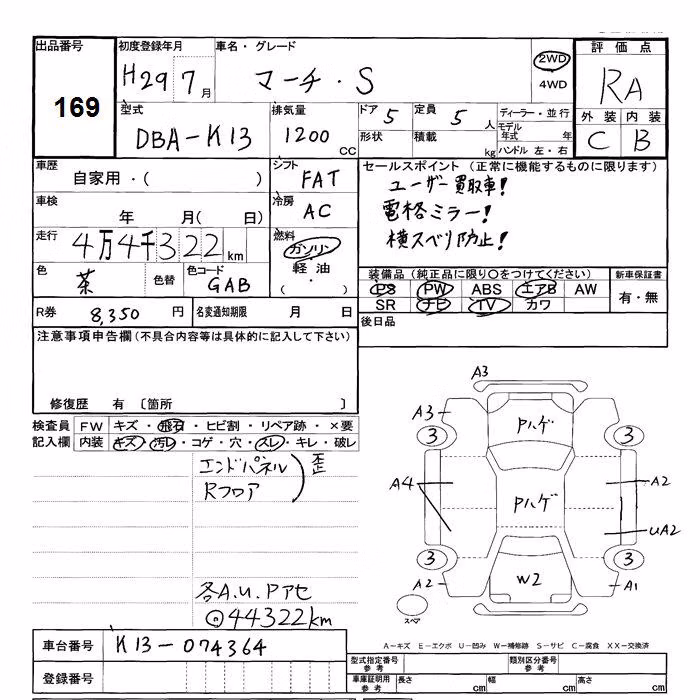 出品番号
169
初度登録年月
H29 7月
車名・グレード
マーチ・S
2WD
4WD
評価点
RA
外装 内装
C B
型式
DBA-K13
排気量
1200 CC
ドア 5
定員 5 人
形状
積載 kg
ディーラー・並行
モデル年式 年
ハンドル 左・右
車歴
自家用・( )
シフト
FAT
車検
年 月( 日)
冷房
AC
走行
4万4千322 km
燃料
ガソリン
軽油
( ・ )
色
茶
色替
色コード
GAB
R券 8,350 円
名変通知期限 月 日
セールスポイント (正常に機能するものに限ります)
ユーザー買取車!
電格ミラー!
横スベリ防止!
装備品 (純正品に限り○をつけてください)
PS PW ABS エアB AW
SR ナビ TV カワ
新車保証書
有・無
後日品
注意事項申告欄(不具合内容等は具体的に記入して下さい)
修復歴 有 〔箇所 〕
検査員記入欄
FW キズ・飛石・ヒビ割・リペア跡・×要
内装 キズ・汚レ・コゲ・穴・スレ・キレ・破レ
エンドパネル
Rフロア
歪
各A.U.Pアセ
44322km
A3
A3
3 3
Pハゲ
A4
Pハゲ
A2
UA2
3 3
A2
W2
A1
スペア
車台番号 K13-074364
登録番号
A-キズ E-エクボ U-凹み W-補修跡 S-サビ C-腐食 XX-交換済
型式指定番号 参考
類別区分番号 参考
車庫証明用 参考
長さ cm
幅 cm
高さ cm